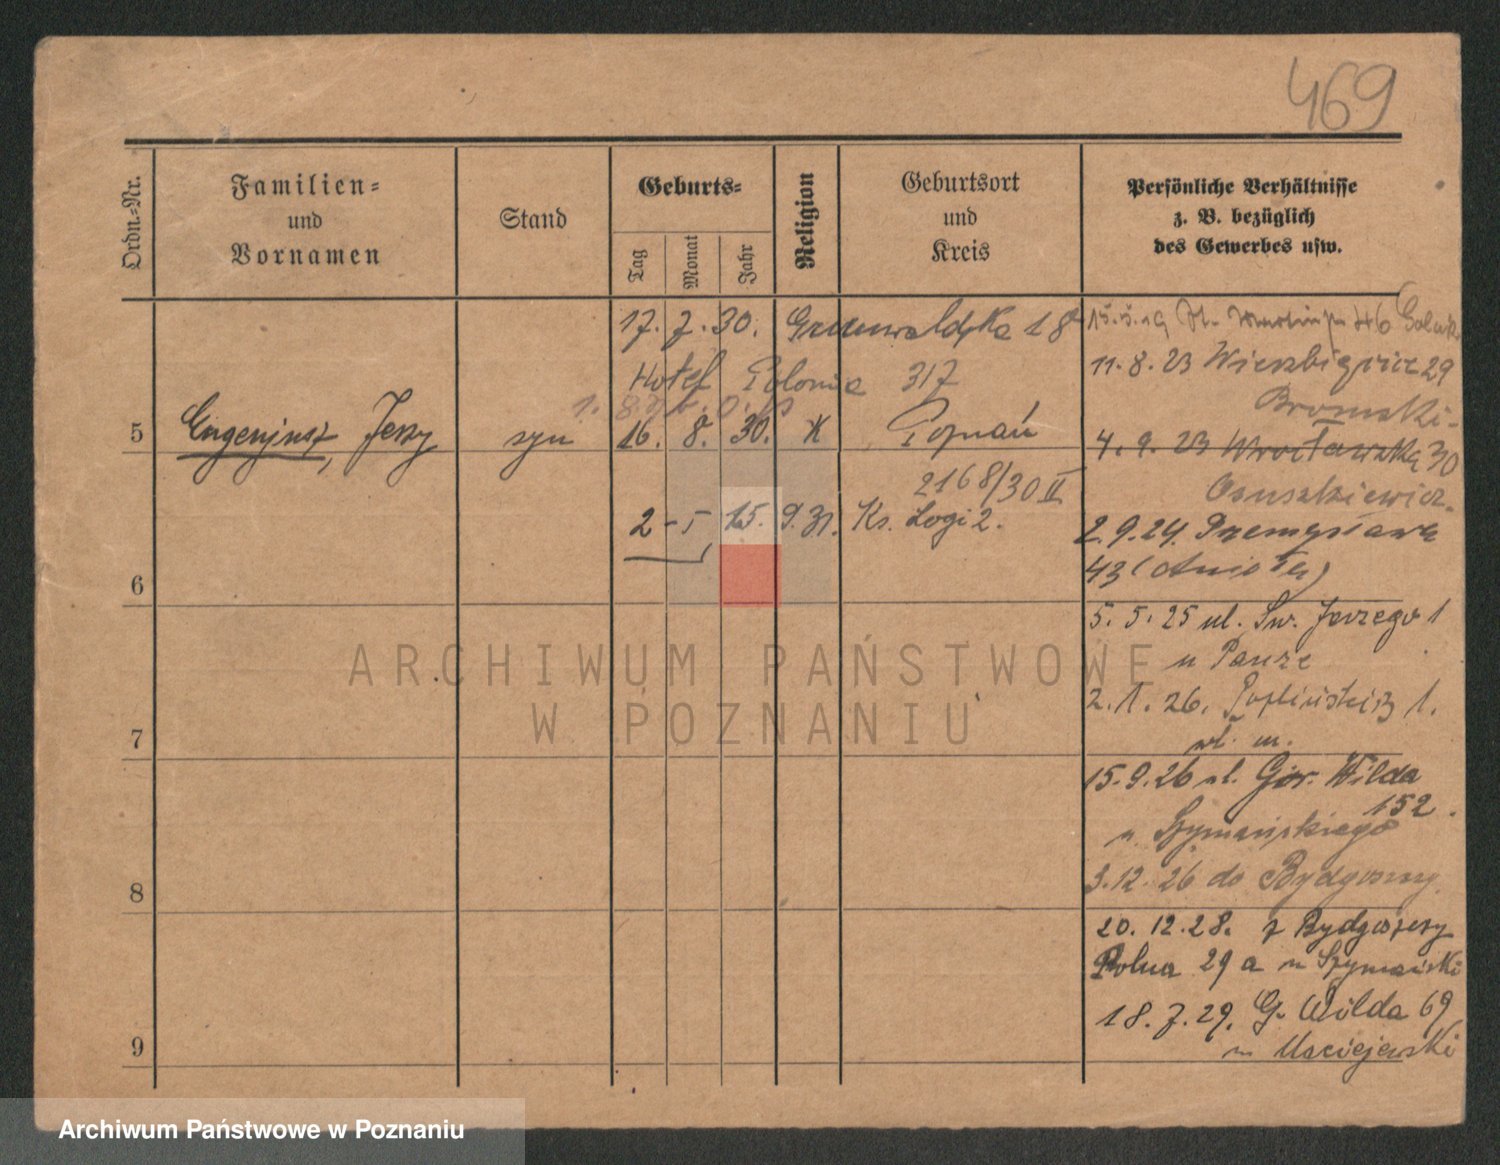 469
Ordn.-Nr.
Familien-
und
Vornamen
Stand
Geburts-
Tag
Monat
Jahr
Religion
Geburtsort
und
Kreis
Persönliche Verhältnisse
z. B. bezüglich
des Gewerbes usw.
17. 7. 30. Grunwaldzka 18
Hotel Polonia 317
5 Eugenjusz, Jerzy syn 16. 8. 30. K Poznań
2168/30 II
2-5 15. 9. 31. Ks.
6
7
8
9
11. 8. 23 Wierzbięcice 29
4. 9. 23 Wrocławska 30
2. 9. 24. Przemysława
43 (Anioła)
5. 5. 25 ul. Św. Jerzego 1
u
2. 1. 26. Poplińskich 1.
15. 9. 26 ul. Gór. Wilda
152.
u Szymańskiego
3. 12. 26 do Bydgoszczy
20. 12. 28. z Bydgoszczy
Polna 29 a u Szymański
18. 7. 29. G. Wilda 69
u Maciejewski
ARCHIWUM PAŃSTWOWE
W POZNANIU
Archiwum Państwowe w Poznaniu